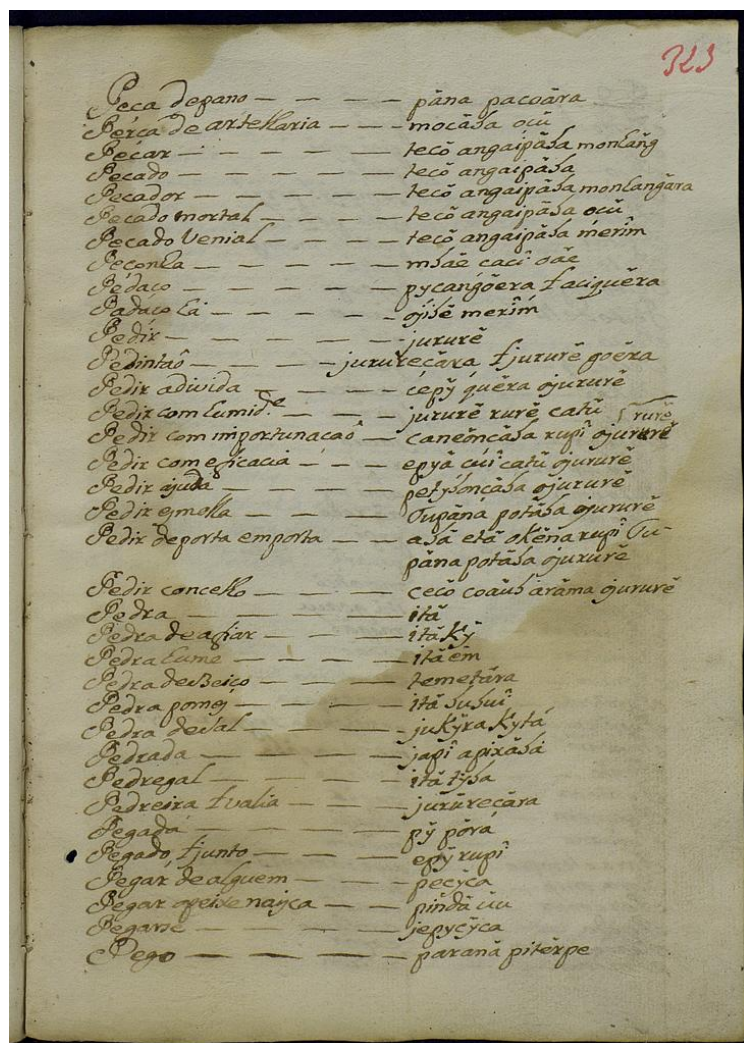 323
Peca depano — — — — pãna pacoãra
Pérca de artelharia — — — mocãba ocũ
Pecar — — — — tecõ angaipãba monhang
Pecado — — — — tecõ angaipãba
Pecador — — — — tecõ angaipãba monhangãra
Pecado mortal — — — — tecõ angaipãba ocũ
Pecado Venial — — — — tecõ angaipãba merim
Peconha — — — — mbãe cacî oãe
Pedaço — — — — pycangõera t aciquẽra
Padaço — — — — merim
Pedir — — — — jururẽ
Pedintaõ — — — — jururecãra t jururẽ goẽra
Pedir adivida — — — — cepỹ quẽra ojururẽ
Pedir com humid.e — — — jururẽ rurẽ catũ
Pedir com importunacaõ — canẽoncãba rupî ojururẽ
Pedir com eficacia — — — epyã catũ ojururẽ
Pedir ajuda — — — — petyboncãba ojururẽ
Pedir esmolla — — — — Tupãna potãba ojururẽ
Pedir deporta emporta — — abã etã okẽna rupî Tu-
pãna potãba ojururẽ
Pedir concelho — — — — cecõ coaub arãma ojururẽ
Pedra — — — — itã
Pedra de afiar — — — — itã Kỹ
Pedra hume — — — — itã em
Pedra deBeiço — — — — temetãra
Pedra pomej — — — — itã bubuî
Pedra deSal — — — — juKỹra Kytá
Pedrada — — — — japî apixãbá
Pedregal — — — — itã tỹba
Pedreira t valia — — — jurũrecãra
Pegadá — — — — pỹ põrá
Pegado, t junto — — — epỹ rupî
Pegar de alguem — — — pecỹca
Pegar opeixe naijca — — — pindã ũu
Pegarse — — — — jepycỹca
Pego — — — — paranã pitẽrpe